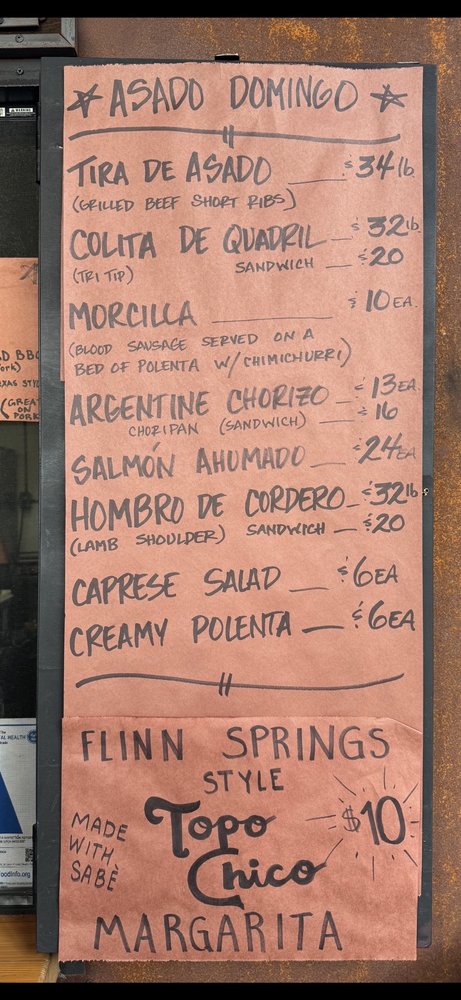 ASADO DOMINGO
TIRA DE ASADO $34 lb.
(GRILLED BEEF SHORT RIBS)
COLITA DE QUADRIL $32 lb.
(TRI TIP) SANDWICH $20
MORCILLA $10 EA.
(BLOOD SAUSAGE SERVED ON A
BED OF POLENTA W/ CHIMICHURRI)
ARGENTINE CHORIZO $13 EA
CHORIPAN (SANDWICH) $16
SALMÓN AHUMADO $24 EA
HOMBRO DE CORDERO $32 lb
(LAMB SHOULDER) SANDWICH $20
CAPRESE SALAD $6 EA
CREAMY POLENTA $6 EA
FLINN SPRINGS
STYLE
MADE
WITH
SABÈ
Topo
Chico
$10
MARGARITA
D BBQ
ork)
EXAS STYL
(GREAT
ON
PORK
AL HEALTH
foodinfo.org